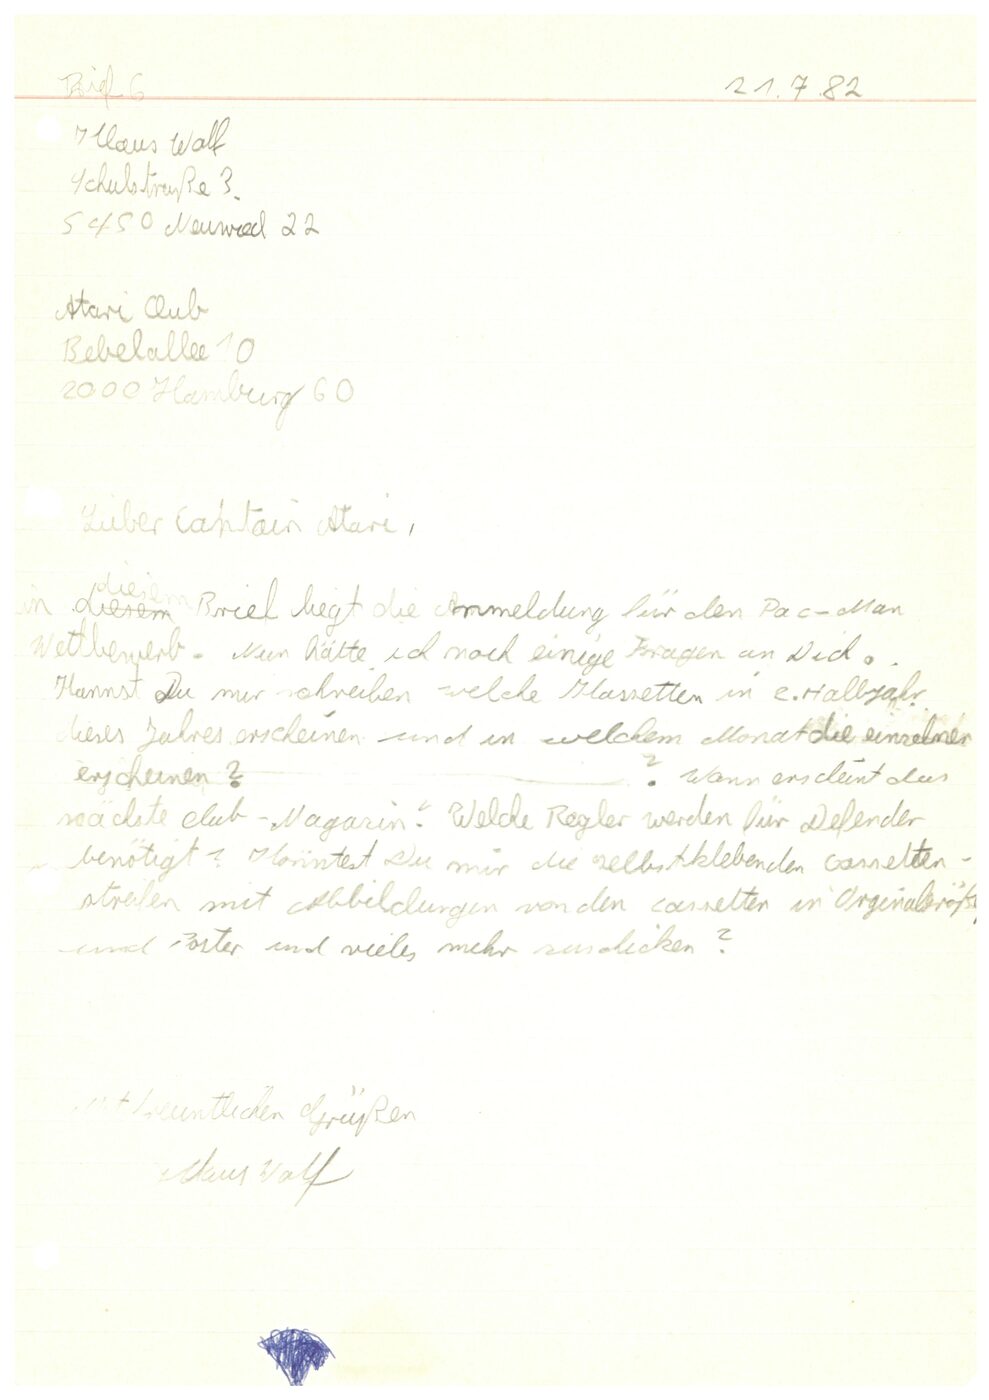 Brief 6
21.7.82
Klaus Wolf
Schulstraße 3.
5450 Neuwied 22
Atari Club
Bebelallee 10
2000 Hamburg 60
Lieber Captain Atari,
diesem
in diesem Brief liegt die Anmeldung für den Pac-Man
Wettbewerb. Nun hätte ich noch einige Fragen an Dich.
Kannst Du mir schreiben welche Kassetten in 2. Halbjahr
dieses Jahres erscheinen und in welchem Monat die einzelnen
erscheinen? ? Wann erscheint das
nächste Club-Magazin? Welche Regler werden für Defender
benötigt? Könntest Du mir die selbstklebenden Cassetten-
streifen mit Abbildungen von den Cassetten in Orginalgröße
und Poster und vieles mehr zuschicken?
Mit freuntlichen Grüßen
Klaus Wolf